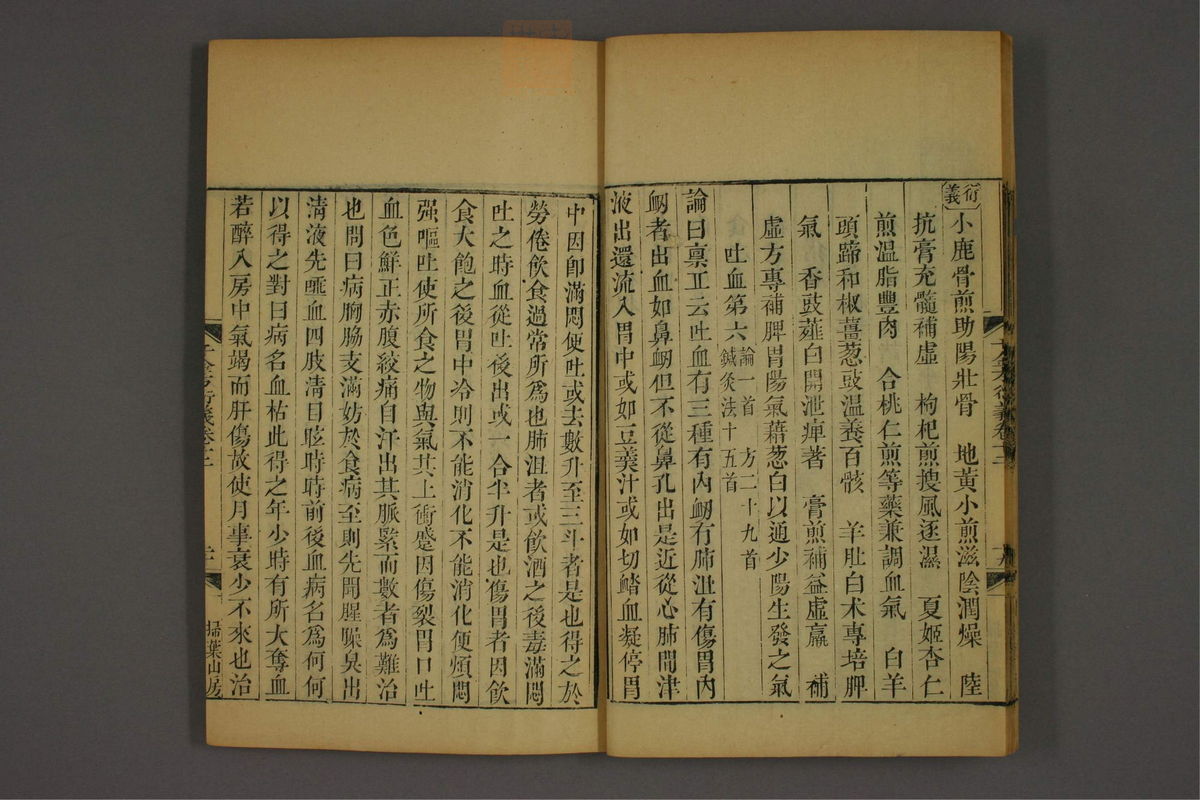 衍義 小鹿骨煎助陽壯骨　地黃小煎滋陰潤燥　陸
抗膏充髓補虛　枸杞煎搜風逐濕　夏姬杏仁
煎溫脂豐肉　合桃仁煎等藥兼調血氣　白羊
頭蹄和椒薑葱豉溫養百骸　羊肚白朮專培脾
氣　香豉薤白開泄痺著　膏煎補益虛羸　補
虛方專補脾胃陽氣藉葱白以通少陽生發之氣
吐血第六 論一首　方二十九首 鍼灸法十五首
論曰禀丘云吐血有三種有內衂有肺疽有傷胃內
衂者出血如鼻衂但不從鼻孔出是近從心肺間津
液出還流入胃中或如豆羹汁或如切䐄血凝停胃
中因卽滿悶便吐或去數升至三斗者是也得之於
勞倦飲食過常所爲也肺沮者或飲酒之後毒滿悶
吐之時血從吐後出或一合半升是也傷胃者因飲
食大飽之後胃中冷則不能消化不能消化便煩悶
强嘔吐使所食之物與氣共上衝蹙因傷裂胃口吐
血色鮮正赤腹絞痛自汗出其脈緊而數者爲難治
也問曰病胸脇支滿妨於食病至則先聞腥臊臭出
清液先唾血四肢清目眩時時前後血病名爲何何
以得之對曰病名血枯此得之年少時有所大奪血
若醉入房中氣竭而肝傷故使月事衰少不來也治
千金方衍義卷三
掃葉山房